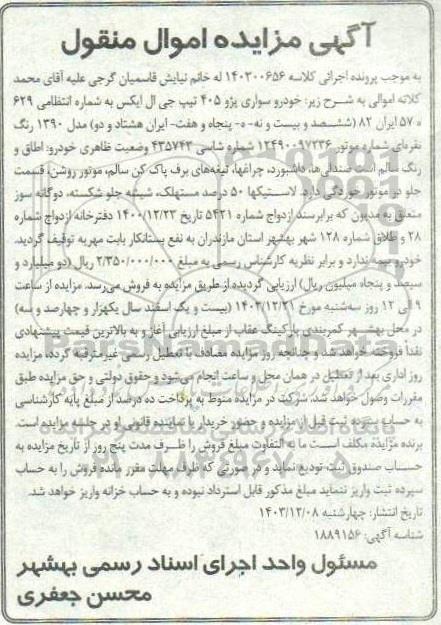 آگهی مزایده اموال منقول
به موجب پرونده اجرائی کلاسه ۱۴۰۳۰۰۶۵۶ له خانم نیایش قاسمیان گرجی علیه آقای محمد
کلاته اموالی به شرح زیر: خودرو سواری پژو ۴۰۵ تیپ جی ال ایکس به شماره انتظامی ۶۲۹
ه ۵۷ ایران ۸۲ (ششصد و بیست و نه- ه- پنجاه و هفت- ایران هشتاد و دو) مدل ۱۳۹۰ رنگ
نقره‌ای شماره موتور ۱۲۴۹۰۰۹۷۳۳۶ شماره شاسی ۴۳۵۷۴۳ وضعیت ظاهری خودرو: اطاق و
رنگ سالم است صندلی‌ها، داشبورد، چراغها، تیغه‌های برف پاک کن سالم، موتور روشن، قسمت
جلو موتور خوردگی دارد. لاستیکها ۵۰ درصد مستهلک، شیشه جلو شکسته، دوگانه سوز
متعلق به مدیون که برابر سند ازدواج شماره ۵۴۲۱ تاریخ ۱۴۰۰/۱۲/۲۳ دفترخانه ازدواج شماره
۲۸ و طلاق شماره ۱۲۸ شهر بهشهر استان مازندران به نفع بستانکار بابت مهریه توقیف گردید.
خودرو بیمه ندارد و برابر نظریه کارشناس رسمی به مبلغ ۲/۳۵۰/۰۰۰/۰۰۰ ریال (دو میلیارد و
سیصد و پنجاه میلیون ریال) ارزیابی گردیده از طریق مزایده به فروش می‌رسد. مزایده از ساعت
۹ الی ۱۲ روز سه‌شنبه مورخ ۱۴۰۳/۱۲/۲۱ (بیست و یک اسفند سال یکهزار و چهارصد و سه)
در محل بهشهر کمربندی پارکینگ عقاب از مبلغ ارزیابی آغاز و به بالاترین قیمت پیشنهادی
نقدا فروخته خواهد شد و چنانچه روز مزایده مصادف با تعطیل رسمی غیرمترقبه گردد، مزایده
روز اداری بعد از تعطیل در همان محل و ساعت انجام می‌شود و حقوق دولتی و حق مزایده طبق
مقررات وصول خواهد شد. شرکت در مزایده منوط به پرداخت ده درصد از مبلغ پایه کارشناسی
به حساب سپرده ثبت قبل از مزایده و حضور خریدار یا نماینده قانونی او در جلسه مزایده است.
برنده مزایده مکلف است ما به التفاوت مبلغ فروش را ظرف مدت پنج روز از تاریخ مزایده به
حساب صندوق ثبت تودیع نماید و در صورتی که ظرف مهلت مقرر مانده فروش را به حساب
سپرده ثبت واریز ننماید مبلغ مذکور قابل استرداد نبوده و به حساب خزانه واریز خواهد شد.
تاریخ انتشار: چهارشنبه ۱۴۰۳/۱۲/۰۸
شناسه آگهی: ۱۸۸۹۱۵۶
مسئول واحد اجرای اسناد رسمی بهشهر
محسن جعفری